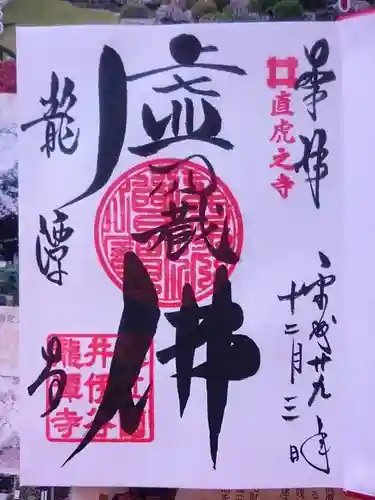 奉拝
直虎之寺
平成廿九年
十二月三日
虚空蔵佛
龍潭寺
井伊谷
龍潭寺